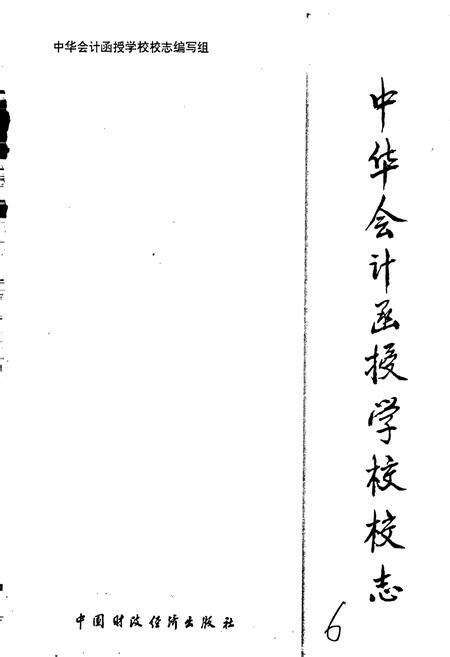 中华会计函授学校校志编写组
中华会计函授学校校志
中国财政经济出版社
6